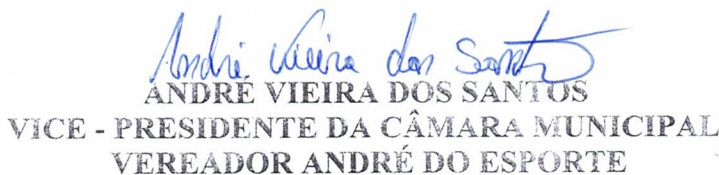 André Vieira dos Santos
ANDRÉ VIEIRA DOS SANTOS
VICE - PRESIDENTE DA CÂMARA MUNICIPAL
VEREADOR ANDRÉ DO ESPORTE